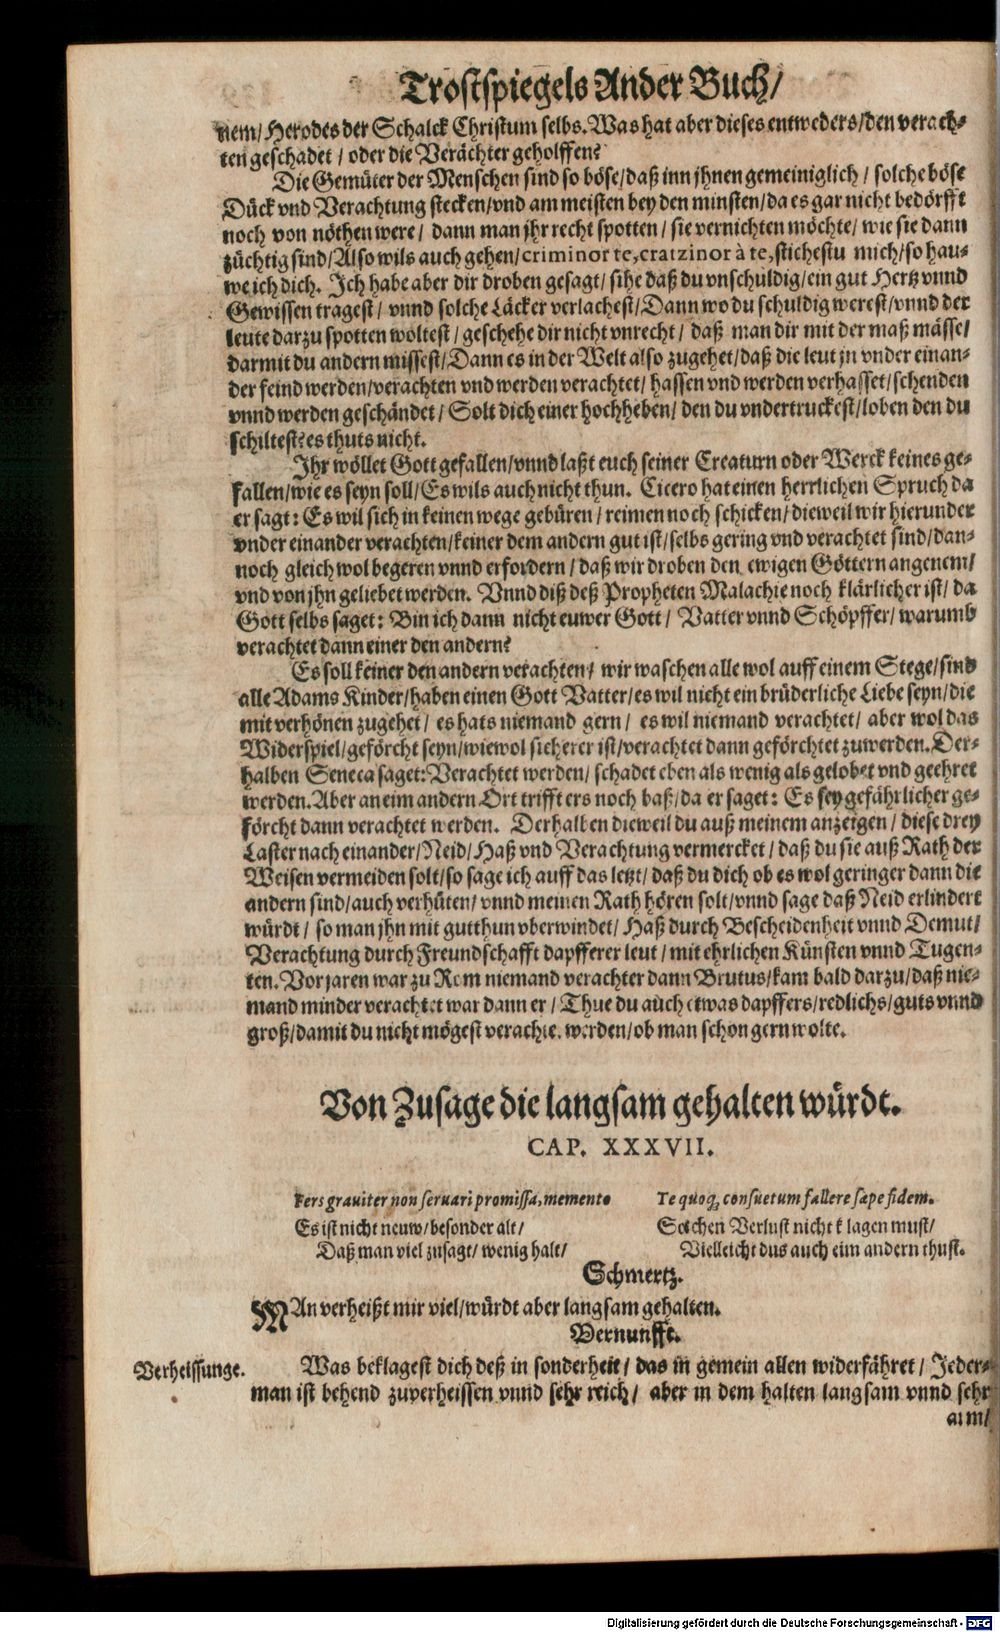 Trostspiegels Ander Buch/
nem/ Herodes der Schalck Christum selbs. Was hat aber dieses entweders/ den verach-
ten geschadet / oder die Verächter geholffen?
Die Gemüter der Menschen sind so böse/ daß inn jhnen gemeiniglich / solche böse
Dück vnd Verachtung stecken/ vnd am meisten bey den minsten/ da es gar nicht bedörfft
noch von nöthen were / dann man jhr recht spotten / sie vernichten möchte / wie sie dann
züchtig sind/ Also wils auch gehen/ criminor te, cratzinor à te, stichestu mich/ so hau-
we ich dich. Ich habe aber dir droben gesagt/ sihe daß du vnschuldig/ ein gut Hertz vnnd
Gewissen tragest / vnnd solche Läcker verlachest/ Dann wo du schuldig werest/ vnnd der
leute darzu spotten woltest/ geschehe dir nicht vnrecht / daß man dir mit der maß mässe/
darmit du andern missest/ Dann es in der Welt also zugehet/ daß die leut jn vnder einan-
der feind werden/ verachten vnd werden verachtet/ hassen vnd werden verhasset/ schenden
vnnd werden geschändet / Solt dich einer hochheben/ den du vndertruckest/ loben den du
schiltest? es thuts nicht.
Ihr wöllet Gott gefallen/ vnnd laßt euch seiner Creaturn oder Werck keines ge-
fallen/ wie es seyn soll/ Es wils auch nicht thun. Cicero hat einen herrlichen Spruch da
er sagt: Es wil sich in keinen wege gebüren / reimen noch schicken/ dieweil wir hierunder
vnder einander verachten/ keiner dem andern gut ist/ selbs gering vnd verachtet sind/ dan-
noch gleich wol begeren vnnd erfordern / daß wir droben den ewigen Göttern angenem/
vnd von jhn geliebet werden. Vnnd diß deß Propheten Malachie noch klärlicher ist/ da
Gott selbs saget: Bin ich dann nicht euwer Gott / Vatter vnnd Schöpffer/ warumb
verachtet dann einer den andern?
Es soll keiner den andern verachten / wir waschen alle wol auff einem Stege/ sind
alle Adams Kinder/ haben einen Gott Vatter/ es wil nicht ein brüderliche Liebe seyn/ die
mit verhönen zugehet / es hats niemand gern / es wil niemand verachtet / aber wol das
Widerspiel/ geförcht seyn/ wiewol sicherer ist/ verachtet dann geförchtet zuwerden. Der-
halben Seneca saget: Verachtet werden/ schadet eben als wenig als gelobet vnd geehret
werden. Aber an eim andern Ort trifft ers noch baß/ da er saget: Es sey gefährlicher ge-
förcht dann verachtet werden. Derhalben dieweil du auß meinem anzeigen / diese drey
Laster nach einander/ Neid/ Haß vnd Verachtung vermercket / daß du sie auß Rath der
Weisen vermeiden solt/ so sage ich auff das letzt/ daß du dich ob es wol geringer dann die
andern sind/ auch verhüten/ vnnd meinen Rath hören solt/ vnnd sage daß Neid erlindert
würdt / so man jhn mit gutthun vberwindet/ Haß durch Bescheidenheit vnnd Demut/
Verachtung durch Freundschafft dapfferer leut / mit ehrlichen Künsten vnnd Tugen-
ten. Vor jaren war zu Rom niemand verachter dann Brutus/ kam bald darzu/ daß nie-
mand minder verachtet war dann er / Thue du auch etwas dapffers/ redlichs/ guts vnnd
groß/ damit du nicht mögest verachtet werden/ ob man schon gern wolte.
Von Zusage die langsam gehalten würdt.
CAP. XXXVII.
Fers graviter non servari promissa, memento
Te quoq; consuetum fallere sæpe fidem.
Es ist nicht neuw/ besonder alt/
Daß man viel zusagt/ wenig halt/
Solchen Verlust nicht klagen must/
Vielleicht dus auch eim andern thust.
Schmertz.
MAn verheißt mir viel/ würdt aber langsam gehalten.
Vernunfft.
Verheissunge.
Was beklagest dich deß in sonderheit / das in gemein allen widerfähret / Jeder-
man ist behend zuverheissen vnnd sehr reich/ aber in dem halten langsam vnnd sehr
arm/
Digitalisierung gefördert durch die Deutsche Forschungsgemeinschaft - DFG